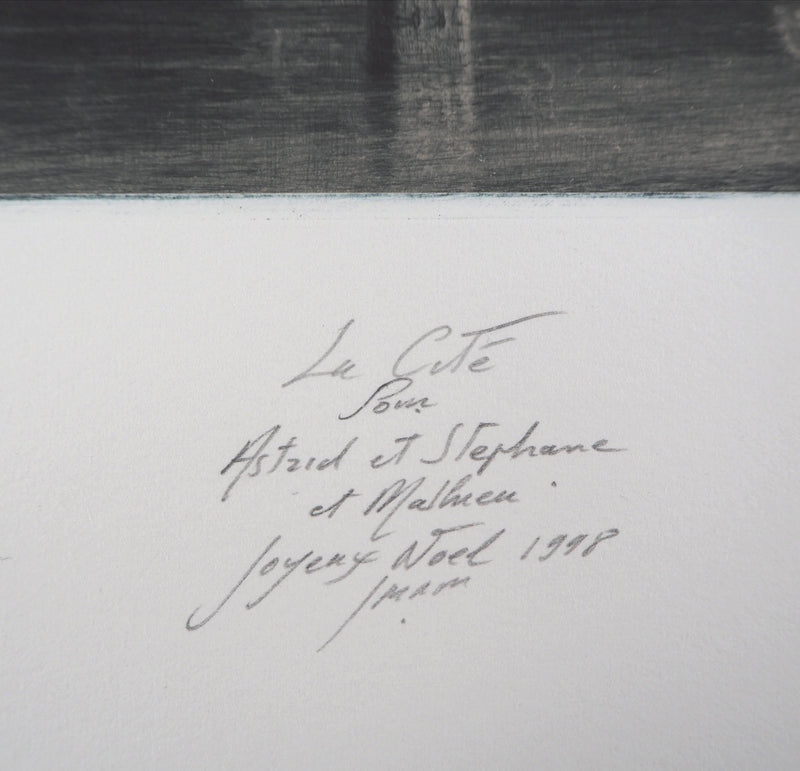 La Cité
Pour
Astrid et Stephane
et Mathieu.
Joyeux Noel 1998